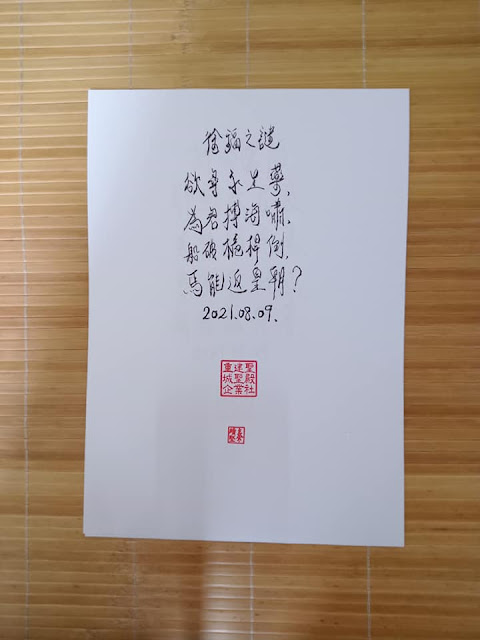 徐福之謎
欲尋永生,
為君搏海嘯.
船破桅桿倒,
焉能返皇朝?
2021.08.09.
重建聖
城聖殿
企業社